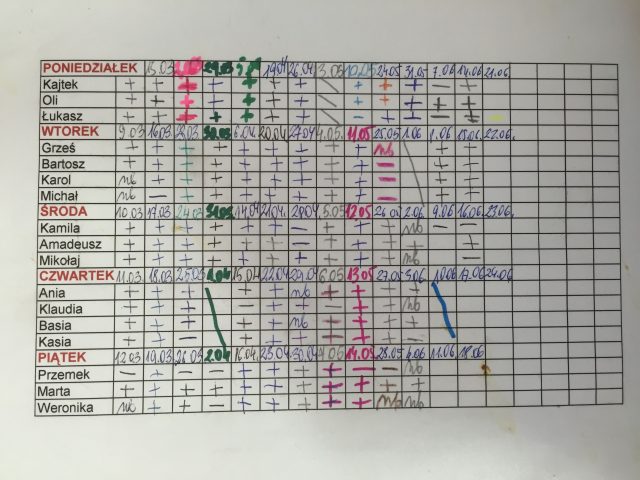 PONIEDZIAŁEK 15.03 29.03 19.04 26.04 3.05 10.05 24.05 31.05 7.06 14.06 21.06
Kajtek + + + + + + + + + + — +
Oli + + + + + + + + + + + +
Łukasz + + + + + + + — + + + +
WTOREK 9.03 16.03 23.03 30.03 6.04 20.04 27.04 4.05. 11.05 25.05 1.06 8.06 15.06 22.06.
Grześ + + + + + + + + + nb
Bartosz + + + + + + + + + —
Karol nb + + + + + + + + —
Michał nb — + + + + + + + —
ŚRODA 10.03 17.03 24.03 31.03 14.04 21.04. 28.04 5.05 12.05 26.05 2.06. 9.06 16.06 23.06.
Kamila + + + + + + — + + + nb — —
Amadeusz + + + + + + + + + + +
Mikołaj + + + + + + + + + + nb
CZWARTEK 11.03 18.03 25.03 1.04 15.04 22.04 29.04 6.05 13.05 27.05 10.06 17.06 24.06
Ania + + + — + nb + + + +
Klaudia + + + — + + + + + nb
Basia + + + + + nb + + + +
Kasia + + + + + + + + +
PIĄTEK 12.03 19.03 26.03 2.04 16.04 23.04 30.04 14.05 28.05 11.06 18.06
Przemek — + — — — + — + — — nb
Marta + + + + + + + + + + +
Weronika nb + + — + + + + + nb nb